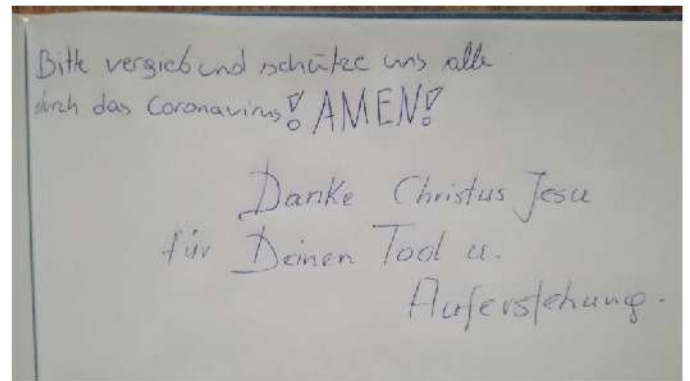 Bitte vergieb und schütze uns alle
durch das Coronavirus! AMEN!
Danke Christus Jesu
für Deinen Tod u.
Auferstehung.